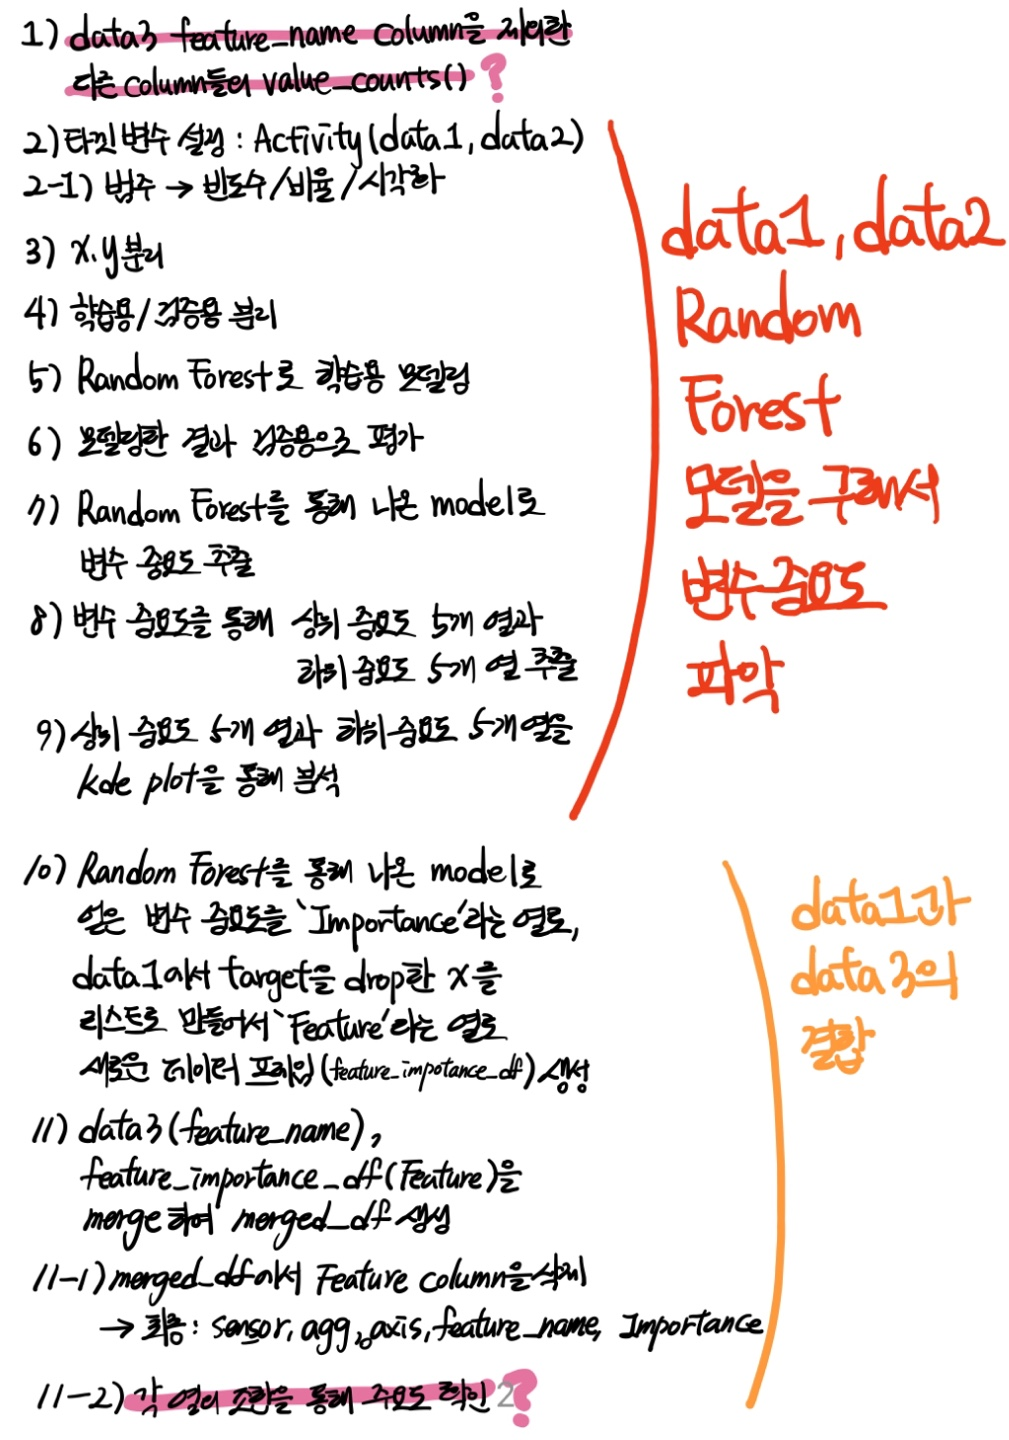 1) data3 feature_name column을 제외한
다른 column들의 value_counts() ?
2) 타깃 변수 설정 : Activity(data1, data2)
2-1) 범주 → 빈도수/비율/시각화
3) x.y 분리
4) 학습용/검증용 분리
5) Random Forest로 학습용 모델링
6) 모델링한 결과 검증용으로 평가
7) Random Forest를 통해 나온 model로
변수 중요도 추출
8) 변수 중요도를 통해 상위 중요도 5개 열과
하위 중요도 5개 열 추출
9) 상위 중요도 5개 열과 하위 중요도 5개 열을
kde plot을 통해 분석
data1, data2
Random
Forest
모델을 구해서
변수 중요도
파악
10) Random Forest를 통해 나온 model로
얻은 변수 중요도를 'Importance'라는 열로,
data1에서 target을 drop한 x를
리스트로 만들어서 'Feature'라는 열로
새로운 데이터 프레임(feature_impotance_df) 생성
11) data3(feature_name),
feature_importance_df(Feature)을
merge하여 merged_df 생성
11-1) merged_df에서 Feature column을 삭제
→ 최종: sensor, agg, axis, feature_name, Importance
11-2) 각 열의 조합을 통해 중요도 확인 2?
data1과
data3의
결합